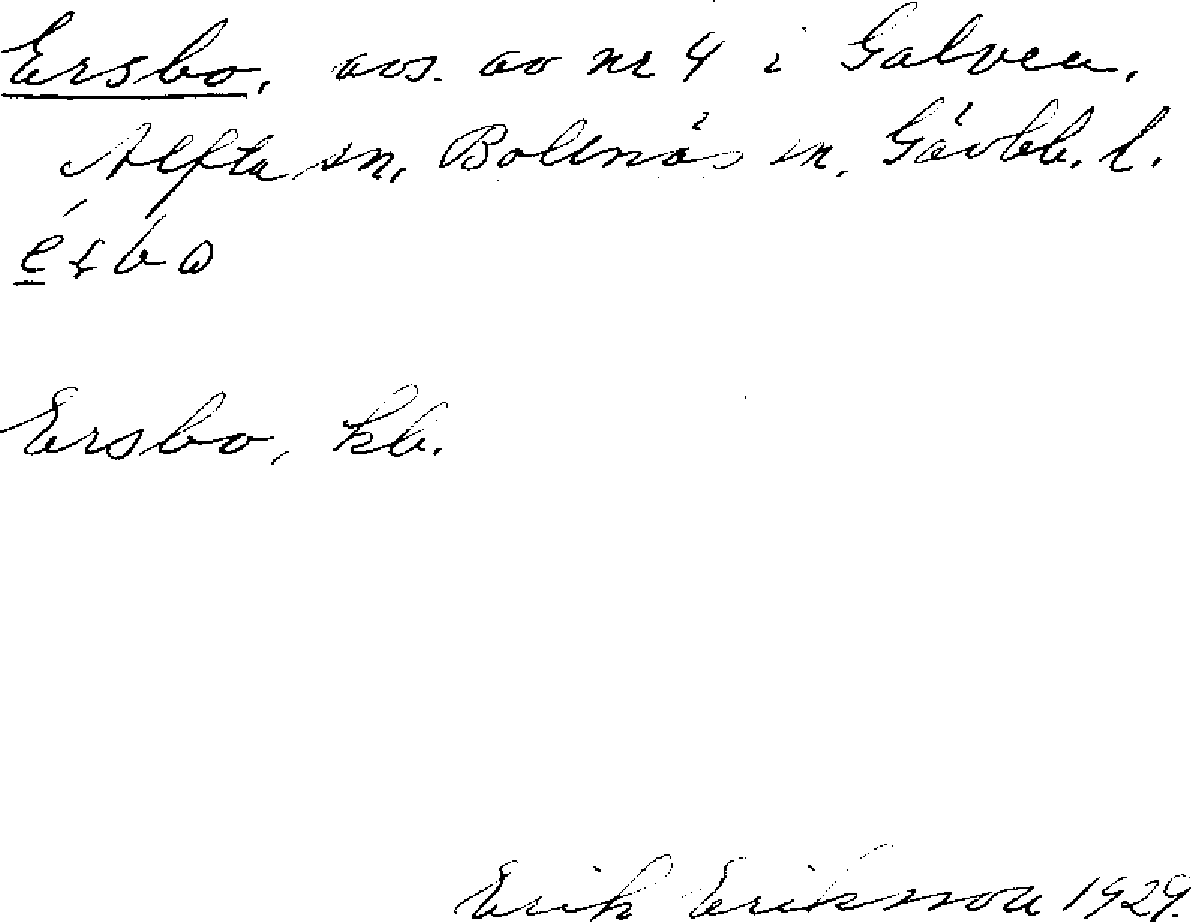 Ersbo, avs. av nr 4 i Galven,
Alfta sn, Bollnäs sn, Gävleb. l.
Ersbo, kb.
Erik Eriksson 1929.